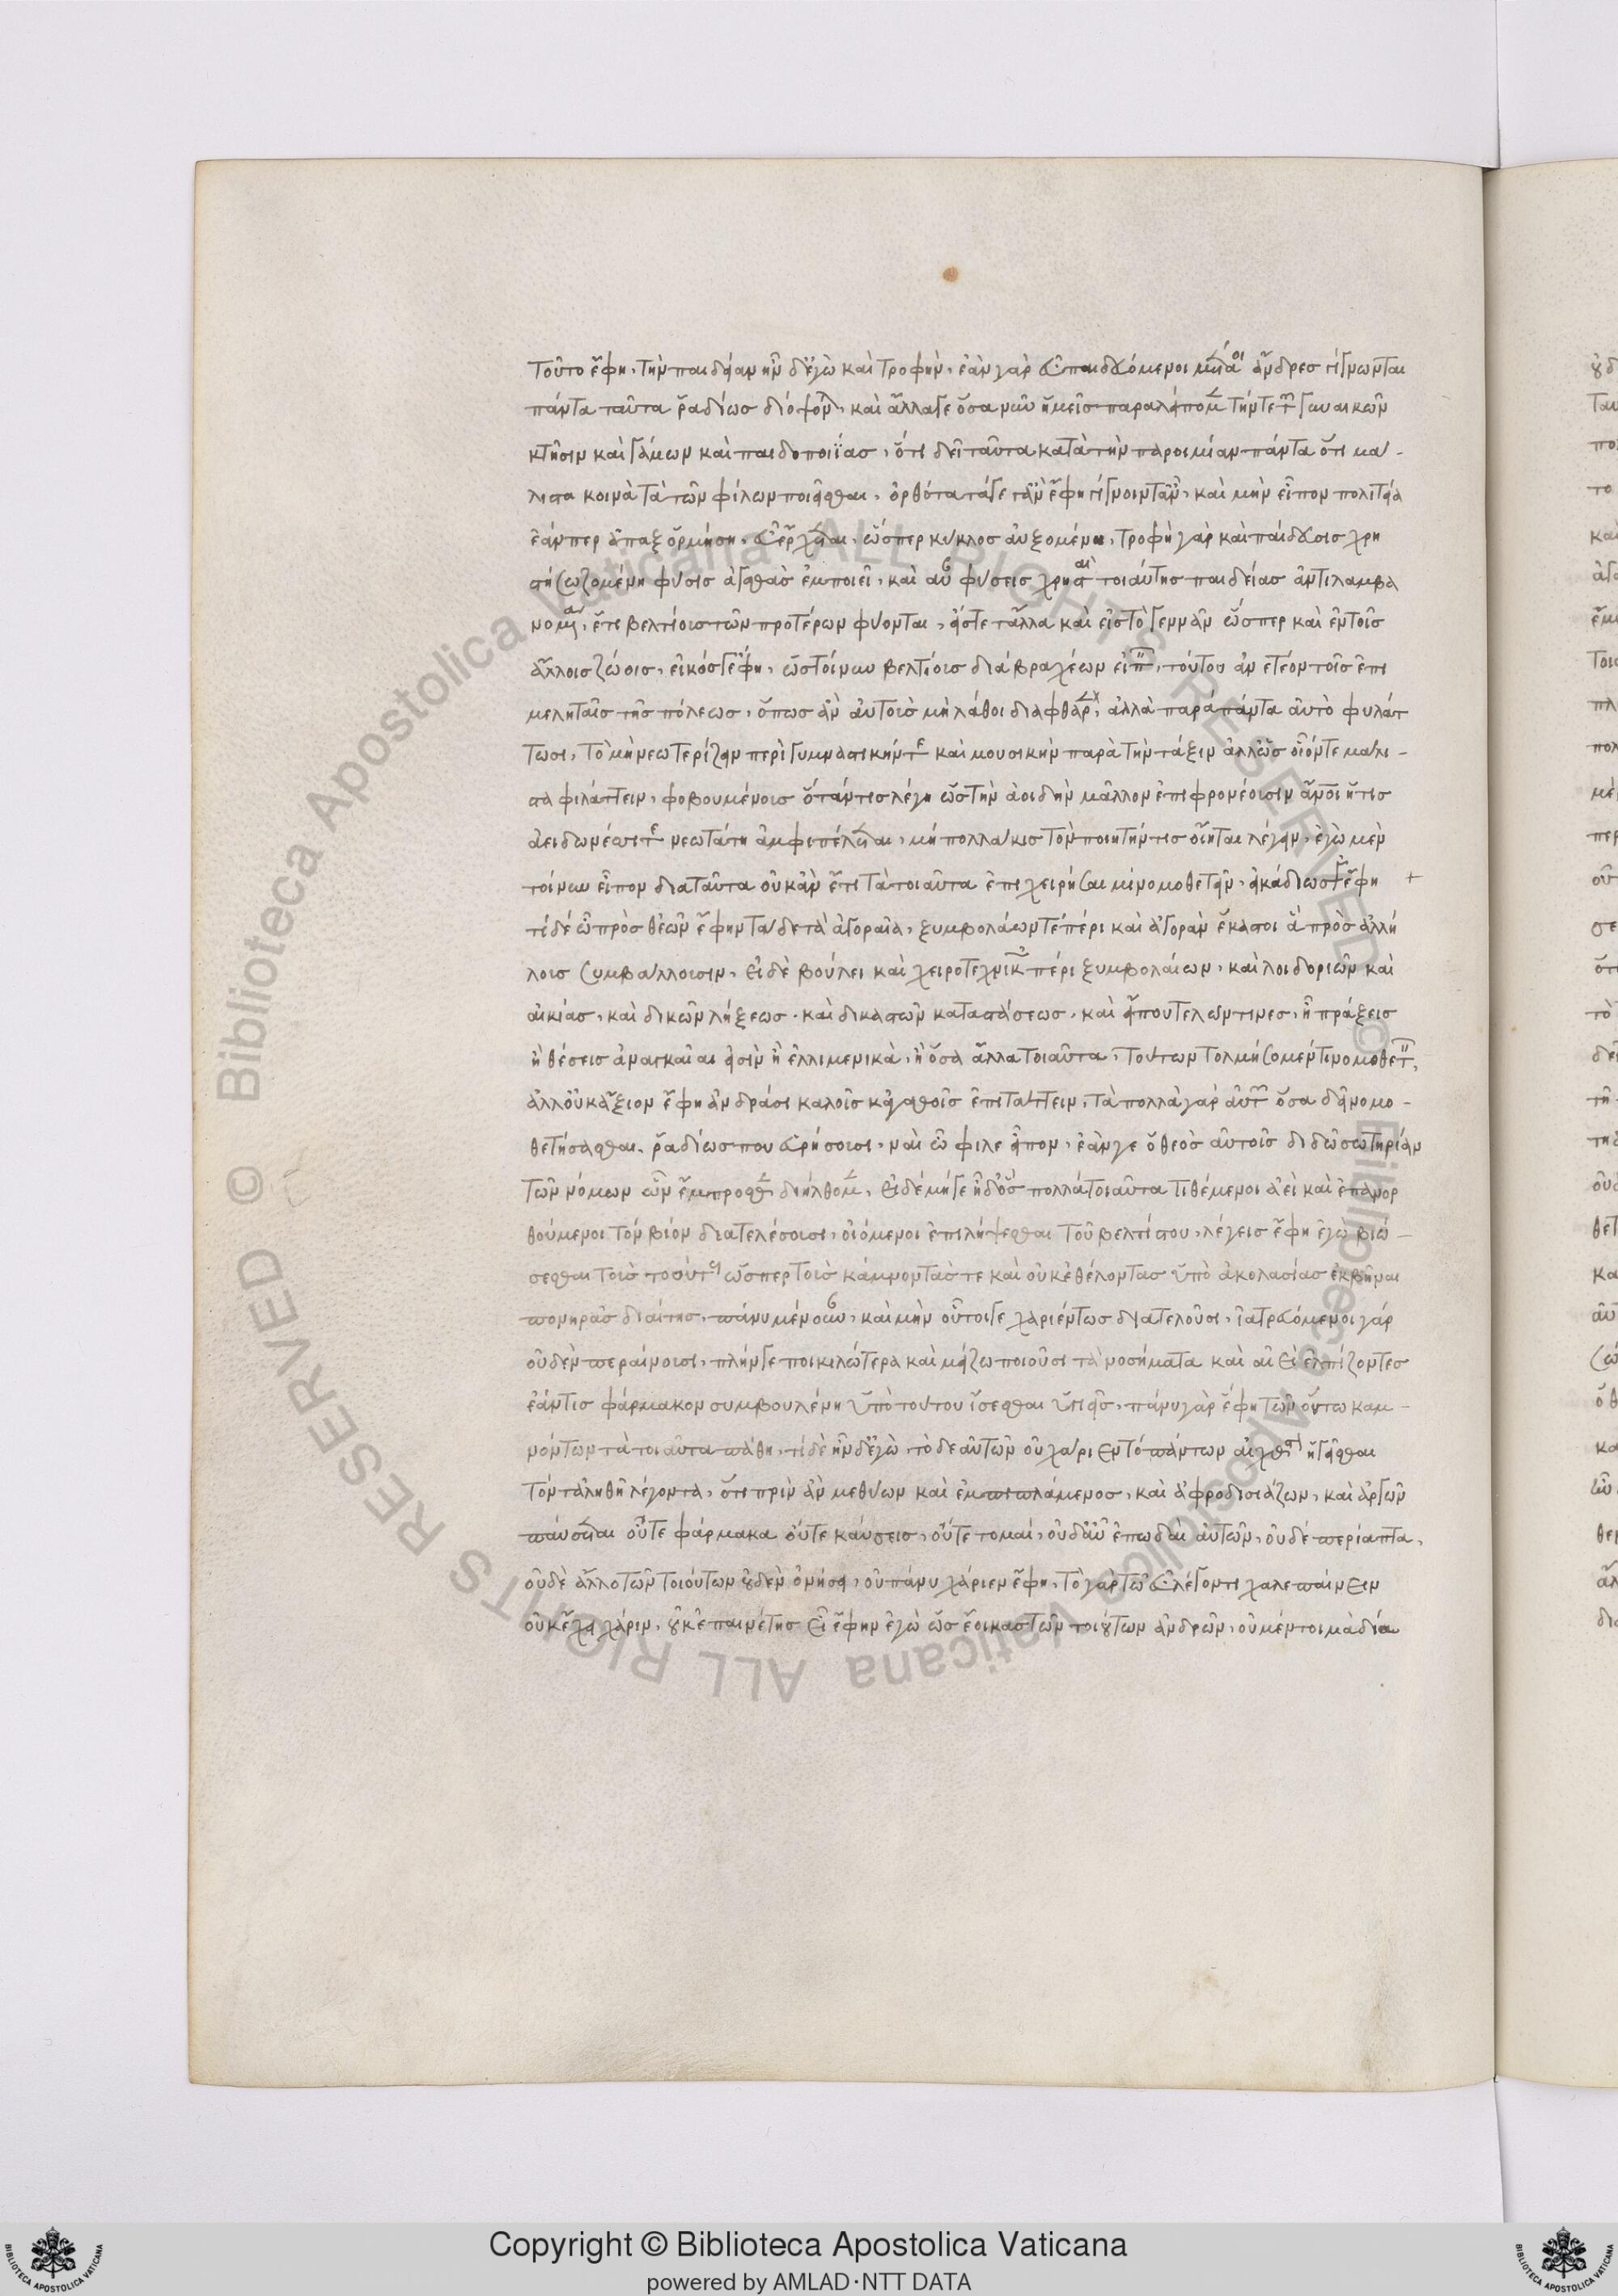 τοῦτο ἔφη, τὴν παιδείαν ἦν δ' ἐγὼ καὶ τροφήν, ἐὰν γὰρ εὖ παιδευόμενοι μέτριοι ἄνδρες γίγνωνται
πάντα ταῦτα ῥαδίως διόψονται, καὶ ἄλλα γε ὅσα νῦν ἡμεῖς παραλείπομεν τήν τε τῶν γυναικῶν
κτῆσιν καὶ γάμων καὶ παιδοποιΐας, ὅτι δεῖ ταῦτα κατὰ τὴν παροιμίαν πάντα ὅτι μά-
λιστα κοινὰ τὰ τῶν φίλων ποιεῖσθαι, ὀρθότατά γε τἂν ἔφη γίγνοιντ' ἄν, καὶ μὴν εἶπον πολιτεία
ἐάνπερ ἅπαξ ὁρμήση, εὖ ἔρχεται, ὥσπερ κύκλος αὐξομένη, τροφὴ γὰρ καὶ παίδευσις χρη
στὴ σωζομένη φύσεις ἀγαθὰς ἐμποιεῖ, καὶ αὖ φύσεις χρησταὶ τοιαύτης παιδείας ἀντιλαμβα
νόμεναι, ἔτι βελτίους τῶν προτέρων φύονται, εἴς τε τἄλλα καὶ εἰς τὸ γεννᾶν ὥσπερ καὶ ἐν τοῖς
ἄλλοις ζώοις, εἰκός γ' ἔφη, ὡς τοίνυν βελτίοις διὰ βραχέων εἰπεῖν, τούτου ἀνετέον τοῖς ἐπι
μεληταῖς τῆς πόλεως, ὅπως ἂν αὐτοὺς μὴ λάθοι διαφθαρὲν, ἀλλὰ παρὰ πάντα αὐτὸ φυλάτ
τωσι, τὸ μὴ νεωτερίζειν περὶ γυμναστικήν τε καὶ μουσικὴν παρὰ τὴν τάξιν ἀλλ' ὡς οἷόν τε μάλι-
στα φυλάττειν, φοβουμένους ὅταν τις λέγη ὡς τὴν ἀοιδὴν μᾶλλον ἐπιφρονέουσιν ἄνθρωποι ἥτις
ἀειδόντεσσι νεωτάτη ἀμφιπέλεται, μὴ πολλάκις τὸν ποιητήν τις οἴηται λέγειν, ἐγὼ μὲν
τοίνυν εἶπον διὰ ταῦτα οὐκ ἂν ἔτι τὰ τοιαῦτα ἐπιχειρήσαιμι νομοθετεῖν, εἰκότως γ' ἔφη
τί δέ ὦ πρὸς θεῶν ἔφην τάδε τὰ ἀγοραῖα, ξυμβολαίων τε πέρι καὶ ἀγορὰν ἕκαστοι ἃ πρὸς ἀλλή
λοις συμβάλλουσιν, εἰ δὲ βούλει καὶ χειροτεχνικῶν πέρι ξυμβολαίων, καὶ λοιδοριῶν καὶ
αἰκίας, καὶ δικῶν λήξεως, καὶ δικαστῶν καταστάσεως, καὶ εἴ που τελῶν τινες, ἢ πράξεις
ἢ θέσεις ἀναγκαῖαι εἰσὶν ἢ ἐλλιμενικὰ, ἢ ὅσα ἄλλα τοιαῦτα, τούτων τολμήσομέν τι νομοθετεῖν,
ἀλλ' οὐκ ἄξιον ἔφη ἀνδράσι καλοῖς κἀγαθοῖς ἐπιτάττειν, τὰ πολλὰ γὰρ αὐτῶν ὅσα δεῖ νομο-
θετήσασθαι, ῥαδίως που εὑρήσουσι, ναὶ ὦ φίλε εἶπον, ἐάν γε ὁ θεὸς αὐτοῖς διδῶ σωτηρίαν
τῶν νόμων ὧν ἔμπροσθεν διήλθομεν, εἰ δὲ μή γε ἦ δ' ὅς πολλὰ τοιαῦτα τιθέμενοι ἀεὶ καὶ ἐπανορ
θούμενοι τὸν βίον διατελέσουσι, οἰόμενοι ἐπιλήψεσθαι τοῦ βελτίστου, λέγεις ἔφη ἐγὼ βιώ-
σεσθαι τοὺς τοιούτους ὥσπερ τοὺς κάμνοντάς τε καὶ οὐκ ἐθέλοντας ὑπὸ ἀκολασίας ἐκβῆναι
πονηρᾶς διαίτης, πάνυ μὲν οὖν, καὶ μὴν οὗτοί γε χαριέντως διατελοῦσι, ἰατρευόμενοι γὰρ
οὐδὲν περαίνουσι, πλήν γε ποικιλώτερα καὶ μείζω ποιοῦσι τὰ νοσήματα καὶ αἰεὶ ἐλπίζοντες
ἐάν τις φάρμακον συμβουλεύη ὑπὸ τούτου ἔσεσθαι ὑγιεῖς, πάνυ γὰρ ἔφη τῶν οὕτω καμ-
νόντων τὰ τοιαῦτα πάθη, τί δὲ ἦν δ' ἐγὼ, τὸ δε αὐτῶν οὐ χάριεν τὸ πάντων αἴχθιστον ἡγεῖσθαι
τὸν τἀληθῆ λέγοντα, ὅτι πρὶν ἂν μεθύων καὶ ἐμπιπλάμενος, καὶ ἀφροδισιάζων, καὶ ἀργῶν
παύσηται οὔτε φάρμακα οὔτε καύσεις, οὔτε τομαί, οὐδ' αὖ ἐπωδαὶ αὐτῶν, οὐδὲ περίαπτα,
οὐδὲ ἄλλο τῶν τοιούτων οὐδὲν ὀνήσει, οὐ πάνυ χάριεν ἔφη, τὸ γὰρ τῶ εὖ λέγοντι χαλεπαίνειν
οὐκ ἔχει χάριν, οὐκ ἐπαινέτης εἶ ἔφην ἐγὼ ὡς ἔοικας τῶν τοιούτων ἀνδρῶν, οὐ μέντοι μὰ δία